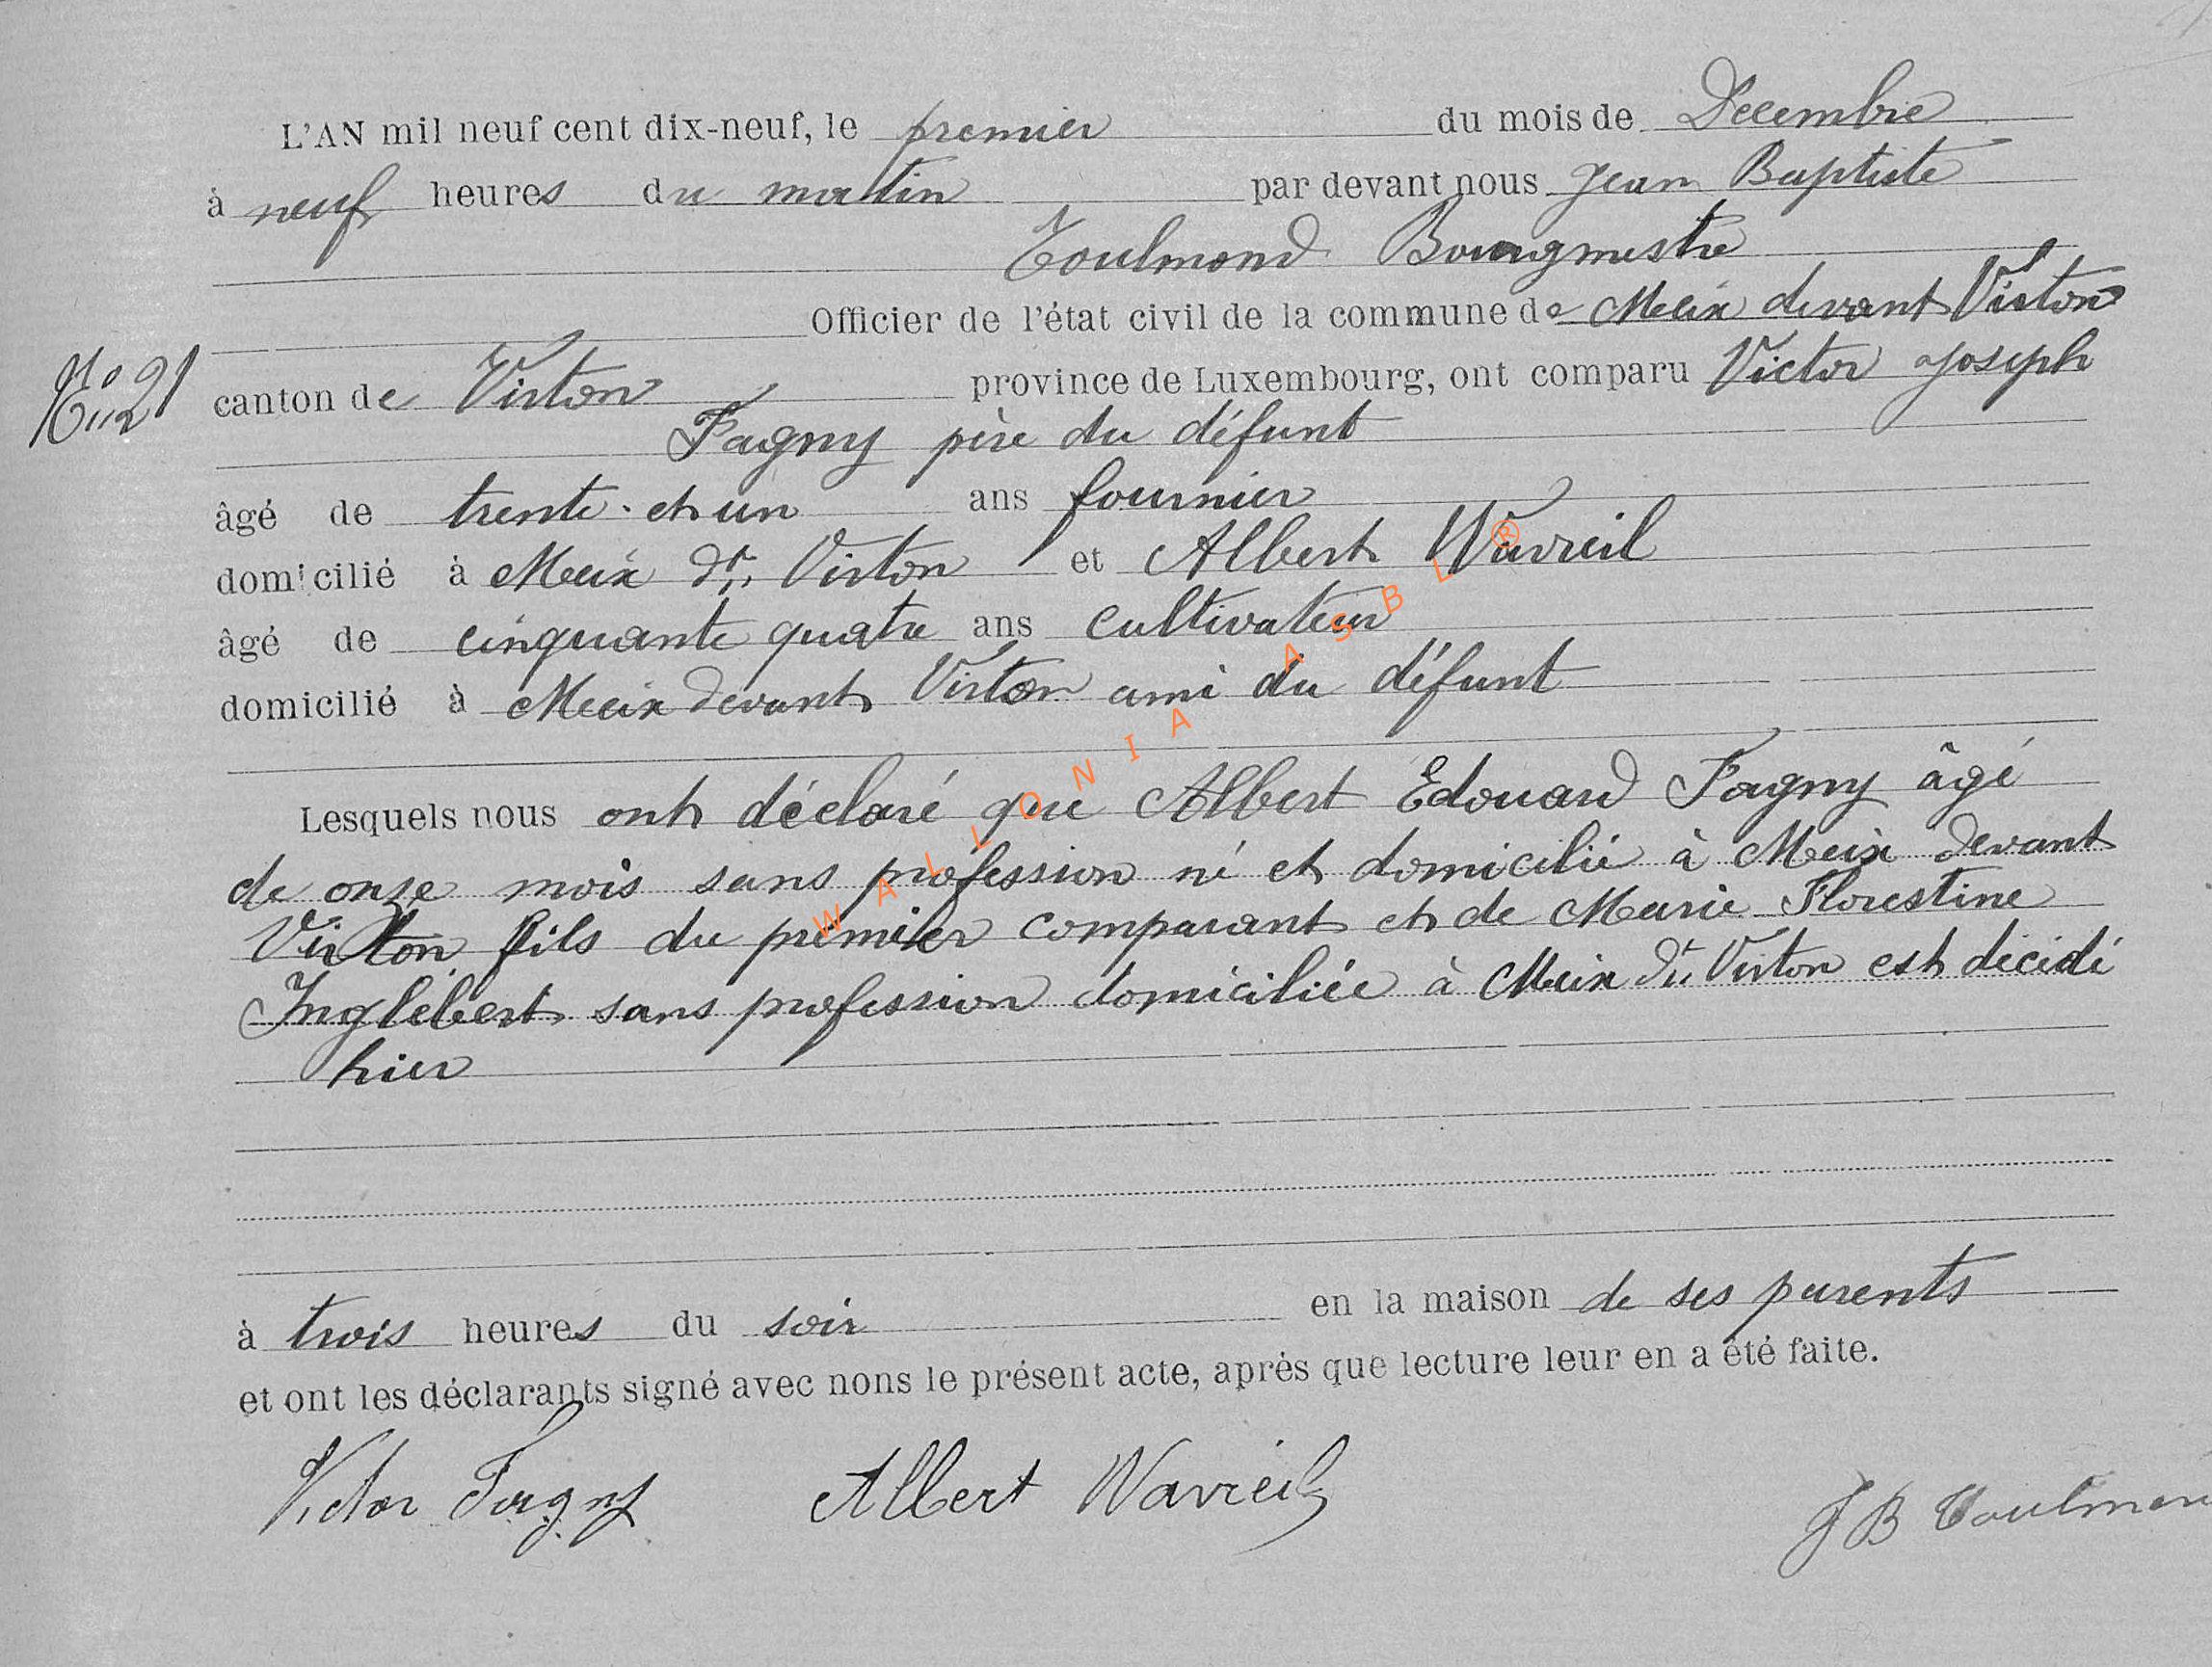 L'AN mil neuf cent dix-neuf, le premier du mois de Décembre
à neuf heures du matin par devant nous Jean Baptiste
Toulmond Bourgmestre
Officier de l'état civil de la commune de Meix devant Virton
N° 21
canton de Virton province de Luxembourg, ont comparu Victor Joseph
Fagny père du défunt
âgé de trente-et un ans fournier
domicilié à Meix dt Virton et Albert Wavreil
âgé de cinquante quatre ans cultivateur
domicilié à Meix devant Virton ami du défunt
Lesquels nous ont déclaré que Albert Edouard Fagny âgé
de onze mois sans profession né et domicilié à Meix devant
Virton fils du premier comparant et de Marie Florestine
Inglebert sans profession domiciliée à Meix dt Virton est décédé
hier
à trois heures du soir en la maison de ses parents
et ont les déclarants signé avec nons le présent acte, après que lecture leur en a été faite.
Victor Fagny Albert Wavreil JB Toulmon
WALLONIA ASBL ®